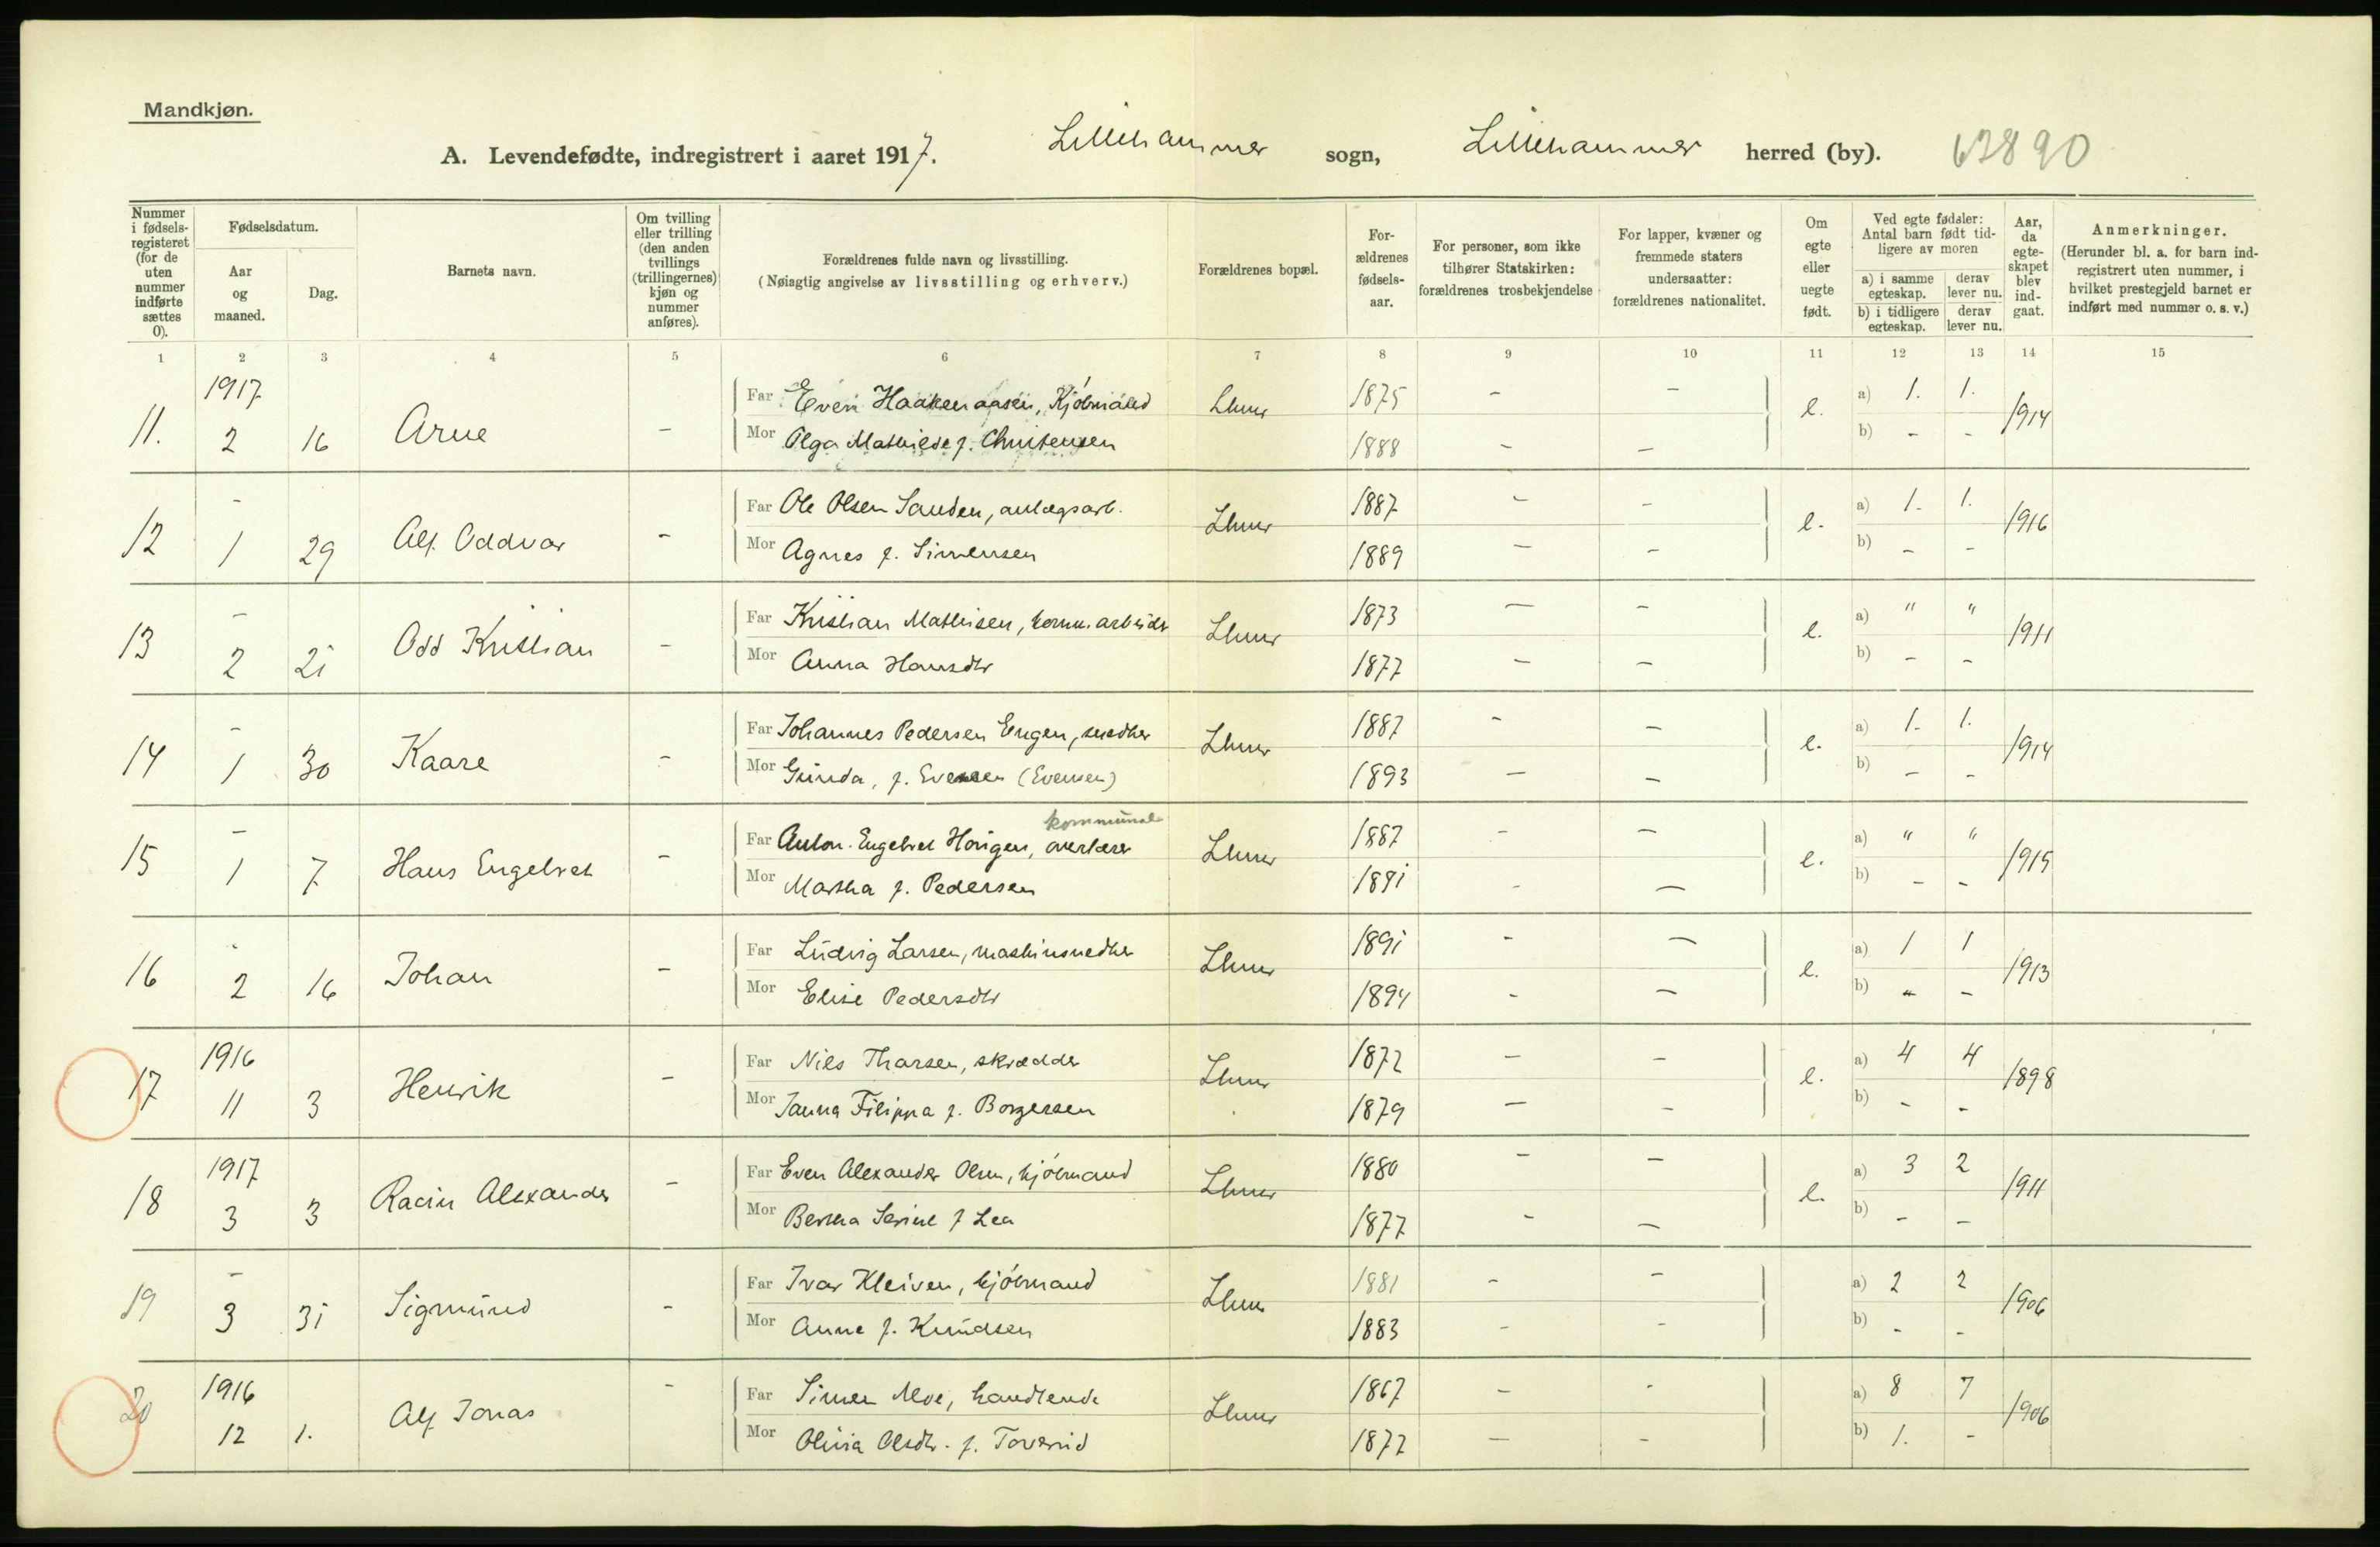 Mandkjøn.
A. Levendefødte, indregistrert i aaret 1917. Lillehammer sogn, Lillehammer herred (by). 62890
Nummer i fødselsregisteret (for de uten nummer indførte sættes 0).
Fødselsdatum.
Aar og maaned.
Dag.
Barnets navn.
Om tvilling eller trilling (den anden tvillings (trillingernes) kjøn og nummer anføres).
Forældrenes fulde navn og livsstilling.
(Nøiagtig angivelse av livsstilling og erhverv.)
Forældrenes bopæl.
Forældrenes fødselsaar.
For personer, som ikke tilhører Statskirken: forældrenes trosbekjendelse
For lapper, kvæner og fremmede staters undersaatter: forældrenes nationalitet.
Om egte eller uegte født.
Ved egte fødsler: Antal barn født tidligere av moren
a) i samme egteskap. derav lever nu.
b) i tidligere egteskap. derav lever nu.
Aar, da egteskapet blev indgaat.
Anmerkninger.
(Herunder bl. a. for barn indregistrert uten nummer, i hvilket prestegjeld barnet er indført med nummer o. s. v.)
1 2 3 4 5 6 7 8 9 10 11 12 13 14 15
1917 Far Even Haakenaasen, Kjøbmand Lhmr 1875 - - e. a) 1. 1. 1914
11. 2 16 Arne - Mor Olga Mathilde f. Christensen 1888 - - b) - -
- Far Ole Olsen Sanden, anlægsarb. Lhmr 1887 - - e. a) 1. 1. 1916
12 1 29 Alf Oddvar - Mor Agnes f. Simensen 1889 - - b) - -
- Far Kristian Mathisen, komm. arbeider Lhmr 1873 - - e. a) " " 1911
13 2 21 Odd Kristian - Mor Anna Hansdtr 1877 - - b) - -
- Far Johannes Pedersen Engen, snedker Lhmr 1887 - - e. a) 1. 1. 1914
14 1 30 Kaare - Mor Gunda, f. Evensen (Evensen) 1893 - - b) - -
kommunal
- Far Anton Engebret Horigen, overlærer Lhmr 1887 - - e. a) " " 1915
15 1 7 Hans Engebret - Mor Martha f. Pedersen 1891 - - b) - -
- Far Ludvig Larsen, maskinsnedker Lhmr 1891 - - e. a) 1 1 1913
16 2 16 Johan - Mor Elise Pedersdtr 1894 - - b) " -
1916 Far Nils Tharsen, skrædder Lhmr 1872 - - e. a) 4 4 1898
17 11 3 Henrik - Mor Janna Filippa f. Borgersen 1879 - - b) - -
1917 Far Even Alexander Olsen, kjøbmand Lhmr 1880 - - e. a) 3 2 1911
18 3 3 Racin Alexander - Mor Bertha Serine f Lea 1877 - - b) - -
- Far Ivar Kleiven, kjøbmand Lhmr 1881 - - a) 2 2 1906
19 3 31 Sigmund - Mor Anne f. Knudsen 1883 - - b) - -
1916 Far Simen Moe, handlende Lhmr 1867 - - a) 8 7 1906
20 12 1. Alf Jonas - Mor Olivia Olsdtr. f. 1877 - - b) 1. -